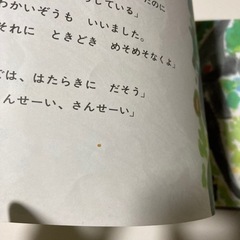 している」
わかいぞうも いいました。
それに ときどき めそめそなくよ」
では、はたらきに だそう」
んせーい、さんせーい」